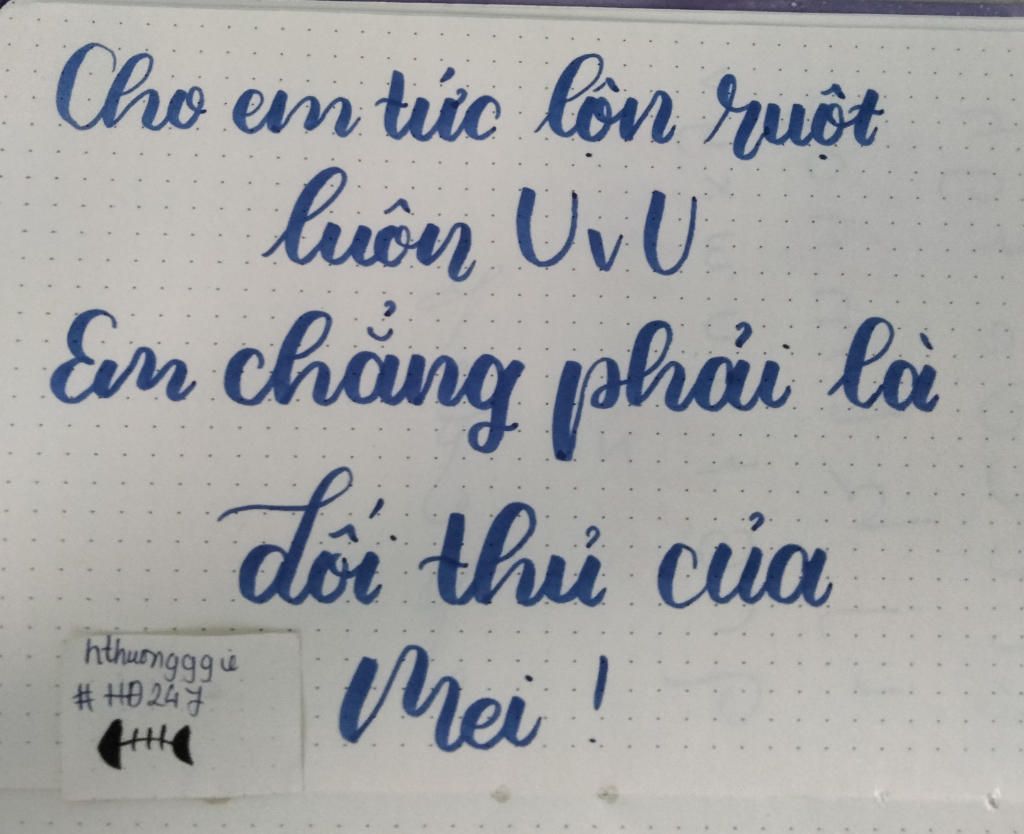 Cho em tức lôn ruột
luôn UvU
Em chẳng phải là
đối thủ của
Mei !
hthuongggie
#HĐ247